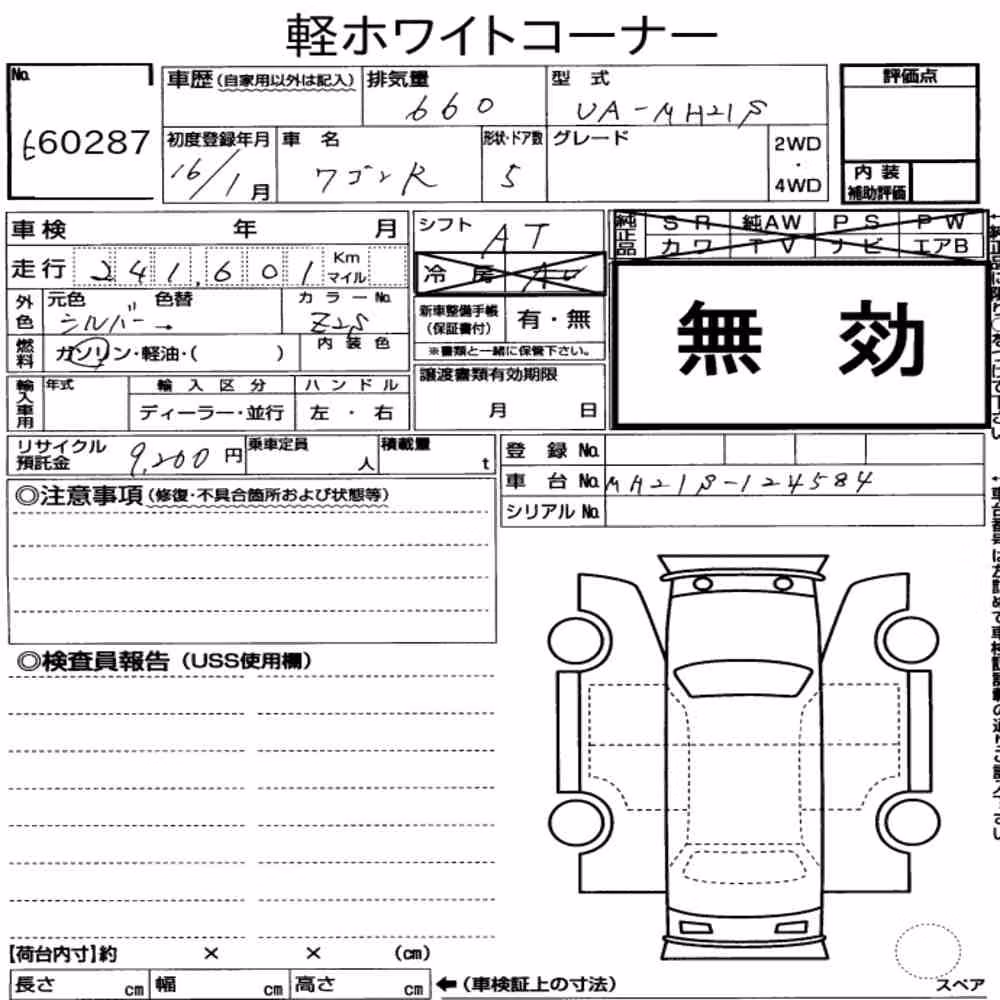 軽ホワイトコーナー
No.
660287
車歴(自家用以外は記入)
排気量
660
型 式
UA-MH21S
評価点
初度登録年月
16/1月
車 名
ワゴンR
形状・ドア数
5
グレード
2WD
・
4WD
内 装
補助評価
車検 年 月
走行 241,601 Km マイル
シフト
AT
冷 房 AC
純正品
SR 純AW PS PW
カワ TV ナビ エアB
無 効
外色
元色 色替
シルバー→
カラーNo.
Z2S
新車整備手帳
(保証書付)
有・無
※書類と一緒に保管下さい。
燃料
ガソリン・軽油・( )
内 装 色
輸入車用
年式
輸 入 区 分
ディーラー・並行
ハ ン ド ル
左 ・ 右
譲渡書類有効期限
月 日
リサイクル
預託金
9,260円
乗車定員
人
積載量
t
登 録 No.
車 台 No. MH21S-124584
シリアル No.
◎注意事項(修復・不具合箇所および状態等)
◎検査員報告(USS使用欄)
【荷台内寸】約 × × (cm)
長さ cm 幅 cm 高さ cm ←(車検証上の寸法)
スペア